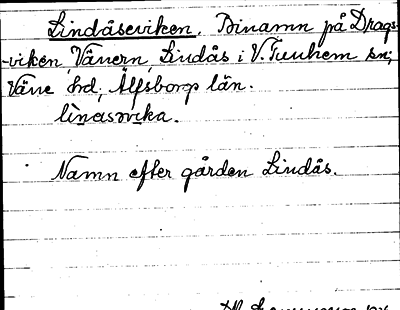 Lindåseviken. Binamn på Drags-
-viken, Vänern, Lindås i V. Tunhem sn;
Väne hd, Älfsborgs län.
Namn efter gården Lindås.